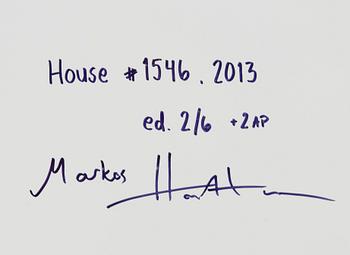 House #1546. 2013
ed. 2/6 +2AP
Markos